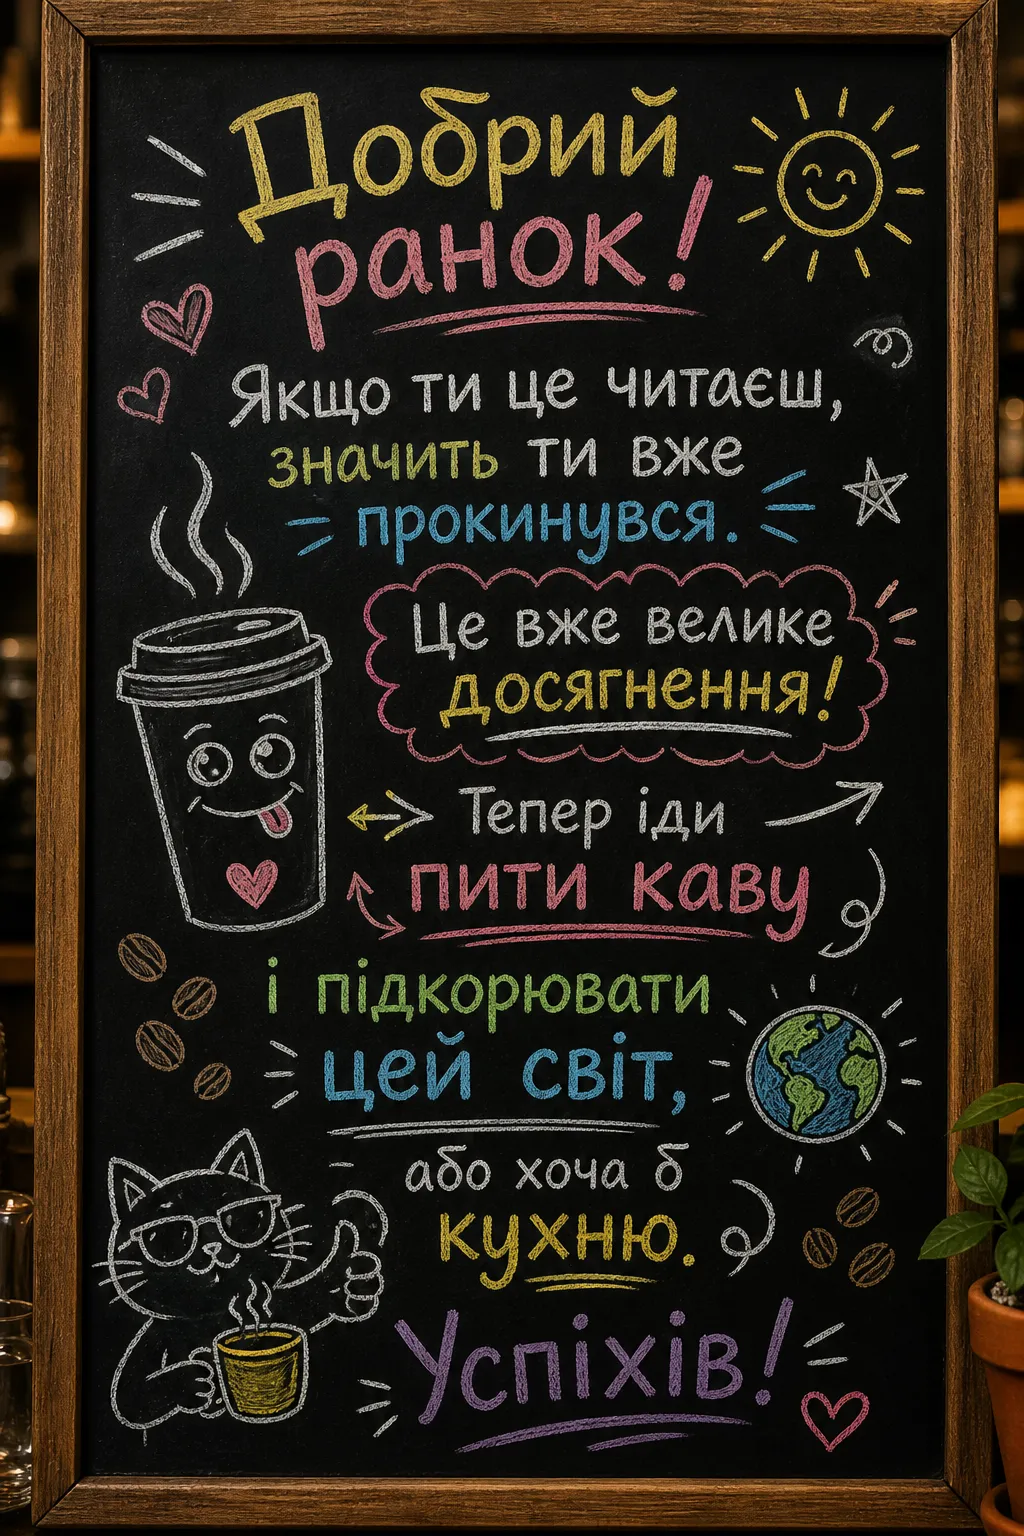 Добрий
ранок!
Якщо ти це читаєш,
значить ти вже
прокинувся.
Це вже велике
досягнення!
Тепер іди
пити каву
і підкорювати
цей світ,
або хоча б
кухню.
Успіхів!